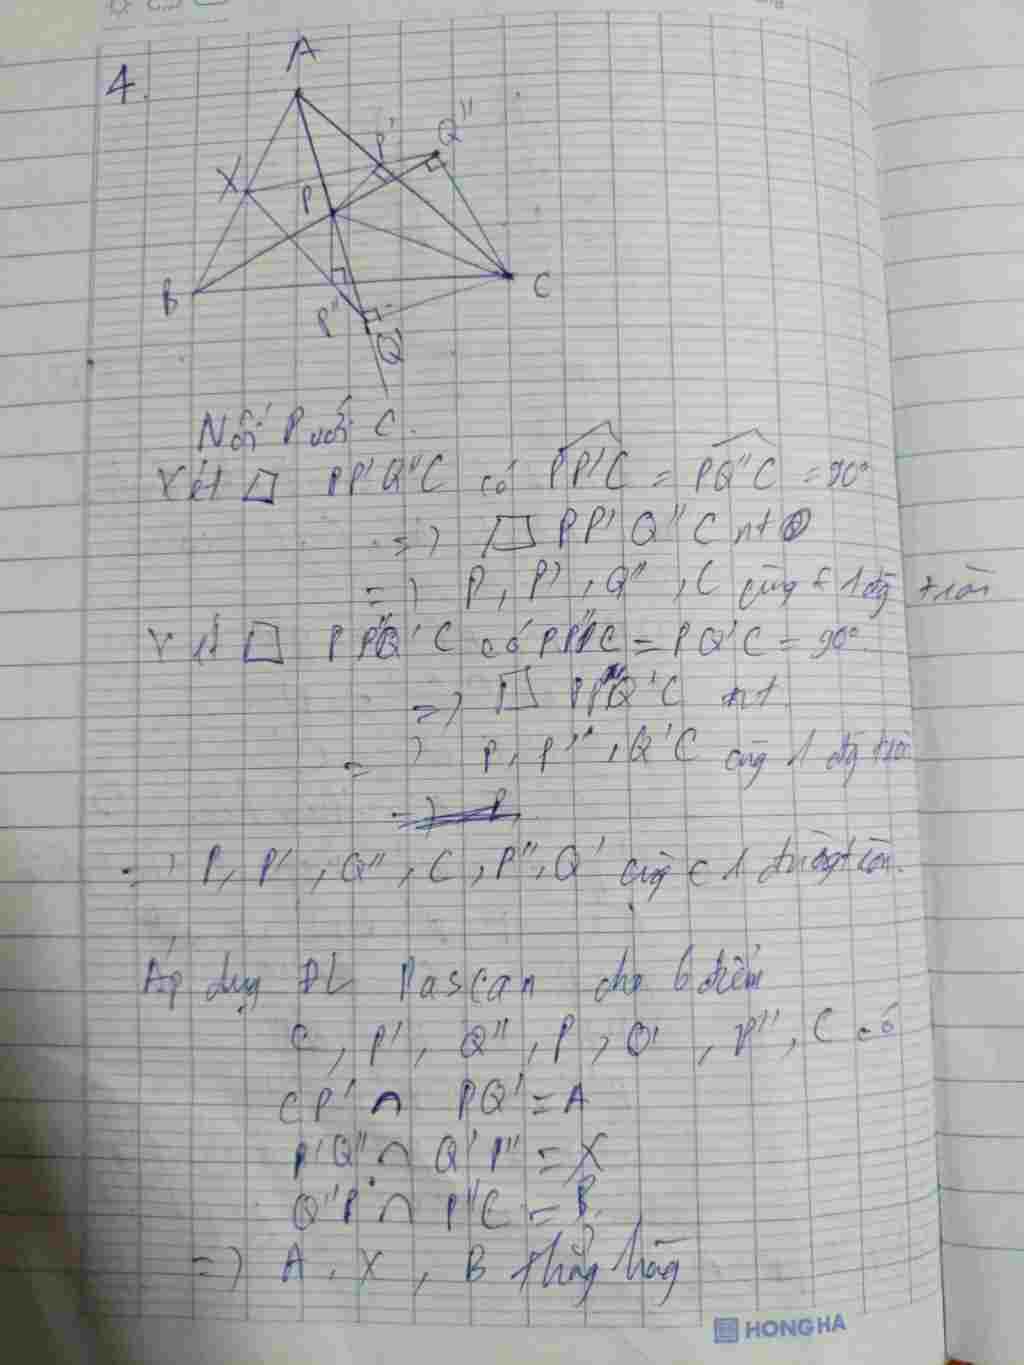 4.
A
X
P'
Q''
P
B
C
P''
Q
Nối P với C.
Xét □ PP'Q''C có PP'C = PQ''C = 90°
=> □ PP'Q''C nt
=> P, P', Q'', C cùng ∈ 1 đg tròn
Xét □ PP''Q'C có PP''C = PQ'C = 90°
=> □ PP''Q'C nt
=> P, P'', Q'C cùng 1 đg tròn
=> P
=> P, P', Q'', C, P'', Q' cùng ∈ 1 đường tròn.
Áp dụng ĐL Pascan cho 6 điểm
C, P', Q'', P, Q', P'', C có
CP' ∩ PQ' = A
P'Q'' ∩ Q'P'' = X
Q''P ∩ P''C = B.
=> A, X, B thẳng hàng
HONG HA